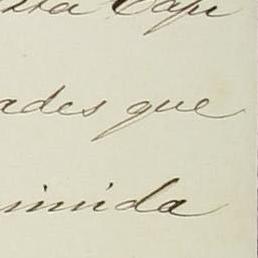 sta Capi
ades que
imida